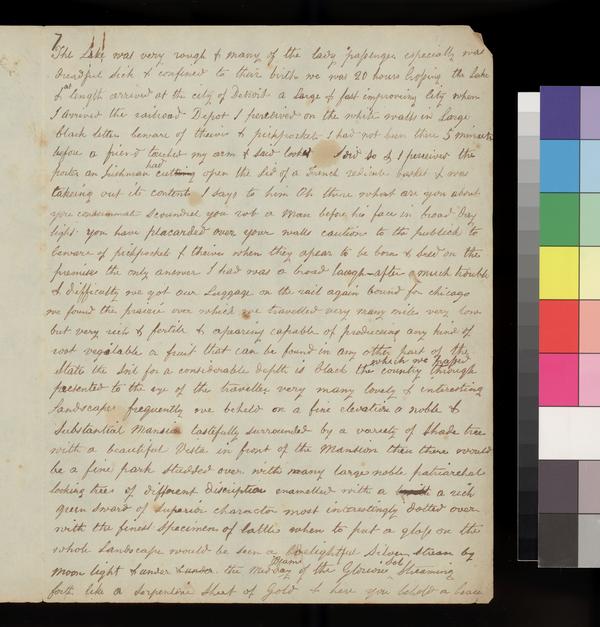 7
The Lake was very rough & many of the lady passenger especially was
dreadful sick & confined to their birth we was 20 hours crossing the Lake
& at length arrived at the city of Detroit a large & fast improveing city when
I arrived the railroad Depot I perceived on the white walls in Large
black letters beware of thieves & pickpockets I had not been there 5 minuets
before a friend touched my arm & said look I did so & I perceives the
porter an Irishman had cutting open the Lid of a french basket & was
takeing out its contents I says to him Oh there what are you about
you scoundrel you rob a Man before his face in broad Day
light you have placarded over your walls caution to the publick to
beware of pickpocket & thieves when they apear to be born & bred on the
premises the only answer I had was a broad laugh - after a much trouble
& difficulty we got our Luggage on the rail again bound for chicago
we found the prairie over which we travelled very many miles very low
but very rich & fertile & apearing capable of produceing any kind of
root vegitable or fruit that can be found in any other part of the
State the Soil for a considerable depth is black the country through which we passed
presented to the eye of the traveller very many lovely & interesting
Landscape frequently we beheld on a fine elevation a noble &
Substantial Mansion tastefully surrounded by a variety of Shade tree
with a beautiful Vesta in front of the Mansion then there would
be a fine park studded over with many large noble patriarchal
looking trees of different discription enamelled with a rich
green sward of superior character most interestingly dotted over
with the finest Specimens of cattle when to put a gloss on the
whole Landscape would be seen a Delightful Silver stream by
moon light & under the Midday Beams of the Glorious Sol Streaming
forth like a Serpentine Sheet of Gold & here you behold a